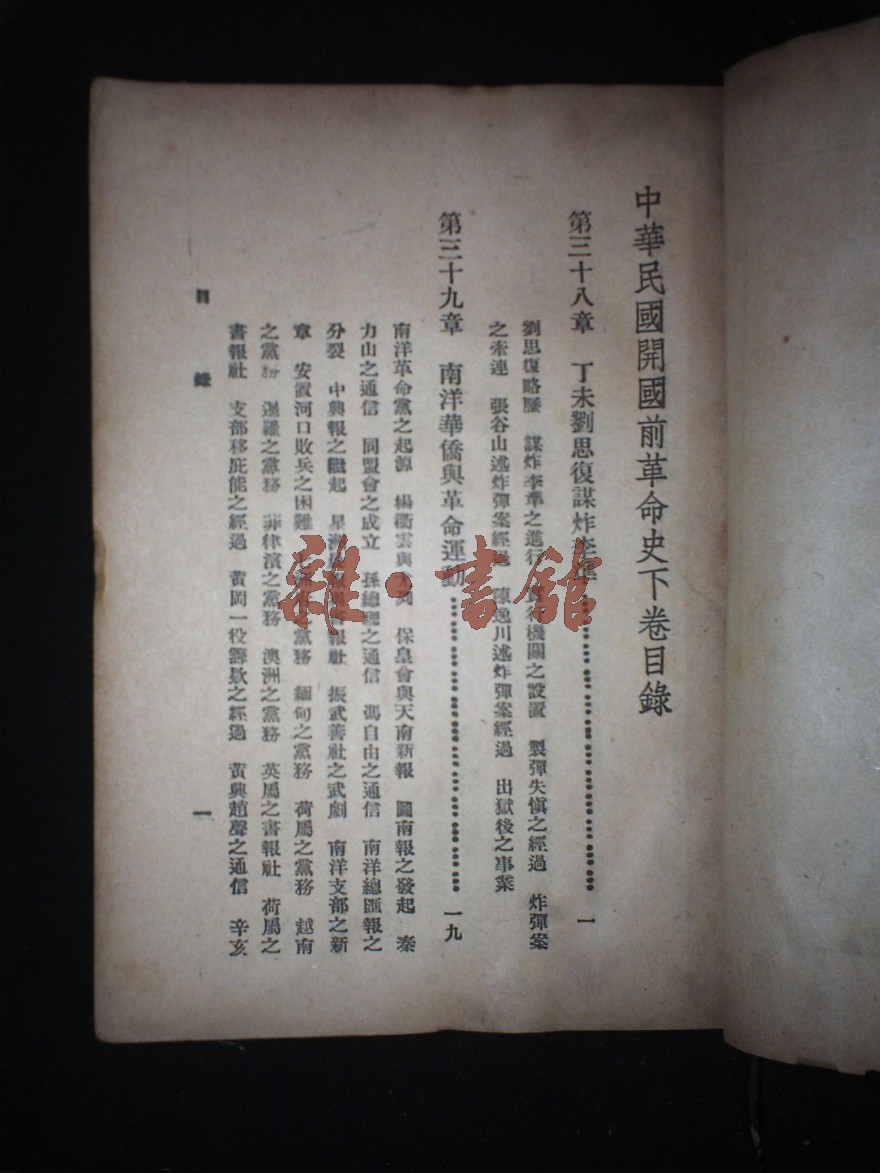 中華民國開國前革命史下卷目錄
第三十八章 丁未劉思復謀炸李準 一
劉思復略歷 謀炸李準之進行 機關之設置 製彈失慎之經過 炸彈案
之牽連 張谷山述炸彈案經過 陳逸川述炸彈案經過 出獄後之事業
第三十九章 南洋華僑與革命運動 一九
南洋革命黨之起源 楊衢雲與 保皇會與天南新報 圖南報之發起 秦
力山之通信 同盟會之成立 孫總理之通信 馮自由之通信 南洋總匯報之
分裂 中興報之繼起 星洲 書報社 振武善社之武劇 南洋支部之新
章 安置河口敗兵之困難 之黨務 緬甸之黨務 荷屬之黨務 越南
之黨務 暹羅之黨務 菲律濱之黨務 澳洲之黨務 英屬之書報社 荷屬之
書報社 支部移庇能之經過 黃岡一役籌欵之經過 黃興趙聲之通信 辛亥
目錄 一
雜·書館